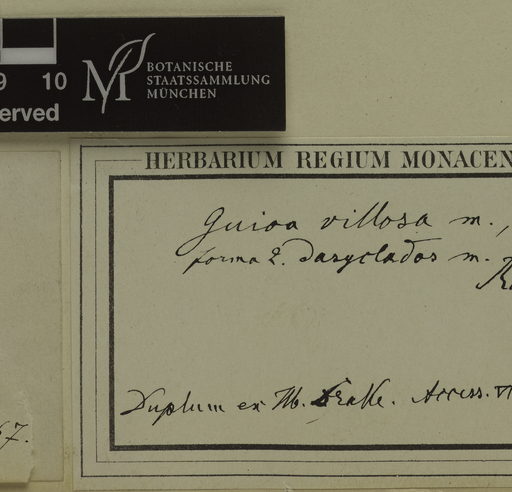 9 10
erved
BOTANISCHE
STAATSSAMMLUNG
MÜNCHEN
HERBARIUM REGIUM MONACEN
Guioa villosa m.,
forma 2. dasyclados m.
Duplum ex M. Drake. Access.
67.